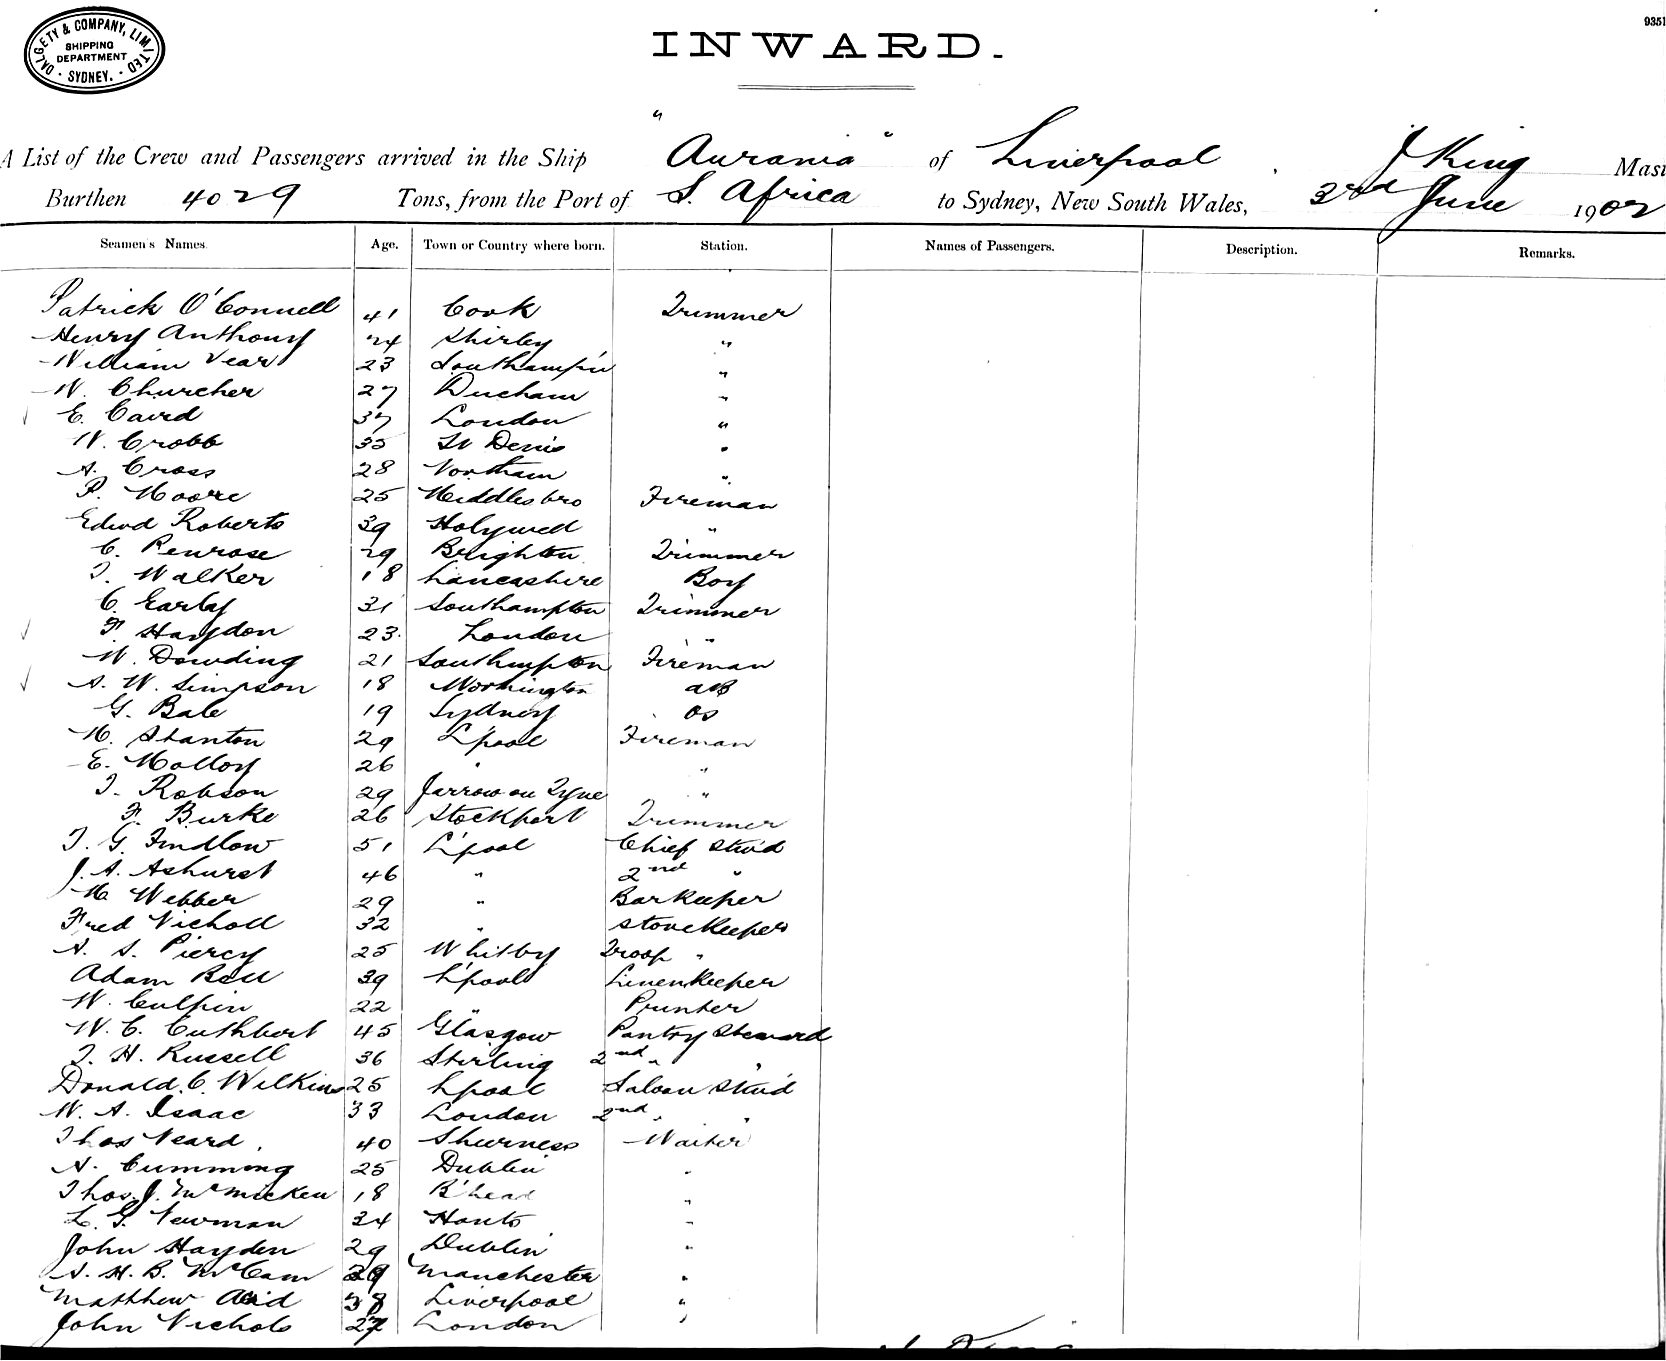 DALGETY & COMPANY, LIMITED
SHIPPING
DEPARTMENT
· SYDNEY. ·
9351
INWARD.
A List of the Crew and Passengers arrived in the Ship "Aurania" of Liverpool, J King Mast
Burthen 4029 Tons, from the Port of S. Africa to Sydney, New South Wales, 3rd June 1902
Seamen's Names. Age. Town or Country where born. Station. Names of Passengers. Description. Remarks.
Patrick O'Connell 41 Cork Trimmer
Henry Anthony 24 Shirley "
William Vear 23 Southamp'n "
W. Churcher 27 Durham "
E. Caird 37 London "
W. Crobb 35 St Denis "
A. Cross 28 Northam "
P. Moore 25 Middlesbro Fireman
Edwd Roberts 39 Holywell "
C. Penrose 29 Brighton Trimmer
T. Walker 18 Lancashire Boy
C. Early 31 Southampton Trimmer
F. Haydon 23 London "
W. Dowding 21 Southmpton Fireman
A. W. Simpson 18 Workington AB
G. Bale 19 Sydney OS
M. Stanton 29 L'pool Fireman
E. Molloy 26 " "
T. Robson 29 Jarrow on Tyne "
F. Burke 26 Stockport Trimmer
T. G. Findlow 51 L'pool Chief Stwd
J. A. Ashurst 46 " 2nd "
M Webber 29 " Barkeeper
Fred Nicholl 32 " Storekeeper
A. S. Piercy 25 Whitby Troop "
Adam Bell 39 L'pool Linenkeeper
W. Culpin 22 " Printer
W. C. Cuthbert 45 Glasgow Pantry Steward
T. H. Russell 36 Stirling 2nd " "
Donald C. Wilkins 25 Lpool Saloon Stwd
W. A. Isaac 33 London 2nd " "
Thos Neard 40 Sheerness Waiter
A. Cumming 25 Dublin "
Thos. J. McMicken 18 B'head "
L. G. Newman 34 Hants "
John Hayden 29 Dublin "
A. H. B. McCam 29 Manchester "
Matthew 38 Liverpool "
John Nichols 27 London "
J King